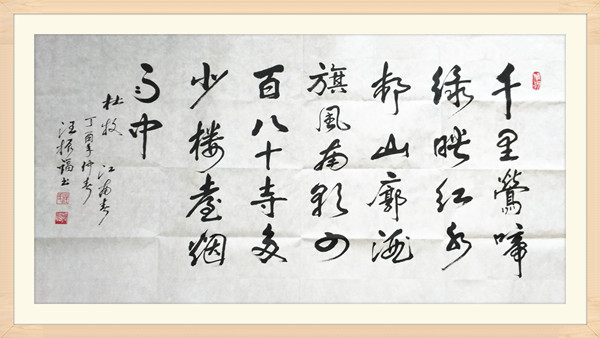 千里鶯啼
绿映红水
邨山廓酒
旗風南朝四
百八十寺多
少楼臺烟
雨中
杜牧 江南春
丁酉年仲春
汪振福书